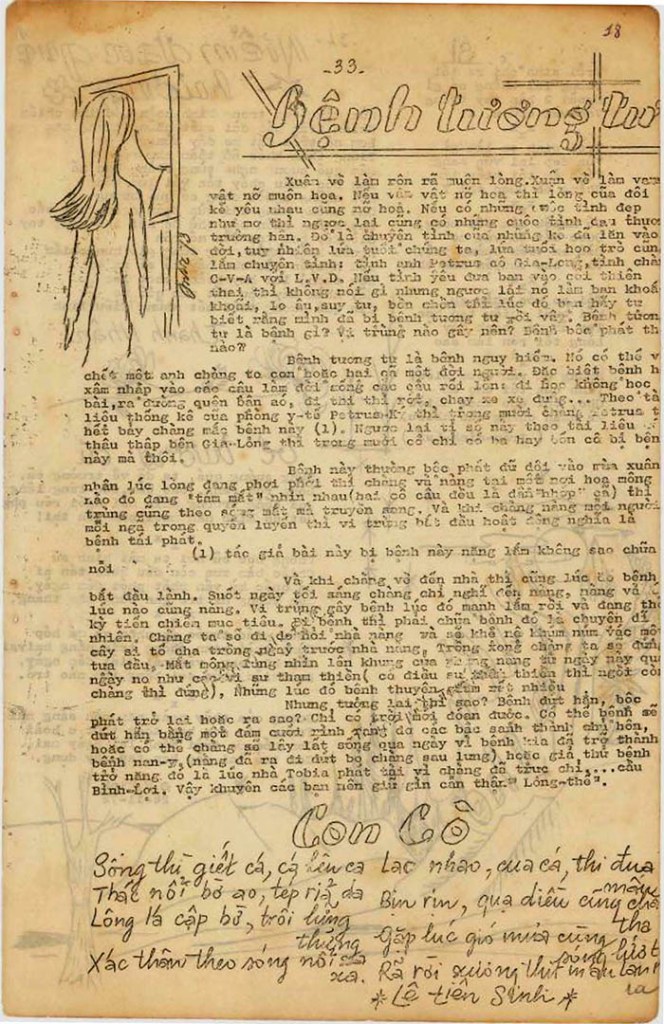 18
-33-
Bệnh tương tư
Xuân về làm rộn rã muôn lòng. Xuân về làm vạn
vật nở muôn hoa. Nếu vạn vật nở hoa thì lòng của đôi
kẻ yêu nhau cũng nở hoa. Nếu có những cuộc tình đẹp
như mơ thì ngược lại cũng có những cuộc tình đau thươn
trường hận. Đó là chuyện tình của những kẻ đã lăn vào
đời, tuy nhiên lứa tuổi chúng ta, lứa tuổi học trò cũn
lắm chuyện tình: tình anh Petrus áo Gia-Long, tình chà
C-V-A với L.V.D. Nếu tình yêu đưa bạn vào cõi thiên
thai thì không nói gì nhưng ngược lại nó làm bạn khoắ
khoải, lo âu, suy tư, bồn chồn thì lúc đó bạn hãy tự
biết rằng mình đã bị bệnh tương tư rồi vậy. Bệnh tươn
tư là bệnh gì? Vi trùng nào gây nên? Bệnh bộc phát th
nào?
Bệnh tương tư là bệnh nguy hiểm. Nó có thể
chết một anh chàng to con hoặc hai cả một đời người. Đặc biệt bệnh h
xâm nhập vào các cậu làm đời sống các cậu rối lên: đi học không học
bài, ra đường quên bận áo, đi thi thì rớt, chạy xe xe đụng... Theo tà
liệu thống kê của phòng y-tế Petrus-Ký thì trong mười chàng Petrus t
hết bảy chàng mắc bệnh này (1). Ngược lại tỉ số này theo tài liệu
thâu thập bên Gia-Long thì trong mười cô chỉ có ba hay bốn cô bị bện
này mà thôi.
Bệnh này thường bộc phát dữ dội vào mùa xuân
nhân lúc lòng đang phơi phới thì chàng và nàng tại một nơi hoa mộng
nào đó đang "tám mắt" nhìn nhau (hai cô cậu đều là dân "nhợp" cả) thì
trùng cũng theo sóng mắt mà truyền sang. Và khi chàng nàng mỗi người
mỗi ngã trong quyến luyến thì vi trùng bắt đầu hoạt động nghĩa là
bệnh tái phát.
(1) tác giả bài này bị bệnh này nặng lắm không sao chữa
nổi
Và khi chàng về đến nhà thì cũng lúc đó bệnh
bắt đầu lành. Suốt ngày tối sáng chàng chỉ nghĩ đến nàng, nàng và
lúc nào cũng nàng. Vi trùng gây bệnh lúc đó mạnh lắm rồi và đang thờ
kỳ tiến chiếm mục tiêu. Bị bệnh thì phải chữa bệnh đó là chuyện đĩ
nhiên. Chàng ta sẽ đi dò hỏi nhà nàng và sẽ khệ nệ khúm núm vác mộ
cây si tổ chả trồng ngay trước nhà nàng. Trồng xong chàng ta sẽ đứng
tựa đầu, Mắt mộng lung nhìn lên khung cửa phòng nàng từ ngày này qu
ngày nọ như các vị sư tham thiền (có điều sư tham thiền thì ngồi còn
chàng thì đứng), Những lúc đó bệnh thuyên giảm rất nhiều
Nhưng tương lai thì sao? Bệnh dứt hẳn, bộc
phát trở lại hoặc ra sao? Chỉ có trời mới đoán được. Có thể bệnh sẽ
dứt hẳn bằng một đám cưới rình rang do các bậc sanh thành chủ hôn,
hoặc có thể chàng sẽ lây lất sống qua ngày vì bệnh kia đã trở thành
bệnh nan-y, (nàng đã ra đi dứt bỏ chàng sau lưng) hoặc giả thử bệnh
trở nặng đó là lúc nhà Tobia phát tài vì chàng đã trực chỉ,... cầu
Bình-Lợi. Vậy khuyên các bạn nên giữ gìn cẩn thận "Long-thể".
Con Cò
Sông thì giết cá, cá lên ca
Thất nổi bờ ao, tép rỉa da
Lông lá cặp bờ, trôi lững
thững
Xác thân theo sóng nổi
xa.
Lao nhao, cua cá, thi đua
mầu
Bịn rịn, quạ diều cũng chả
tha
Gặp lúc gió mưa cùng
sóng lướt
Rã rời xương thịt máu lan
ra
* Lê tiên Sinh *